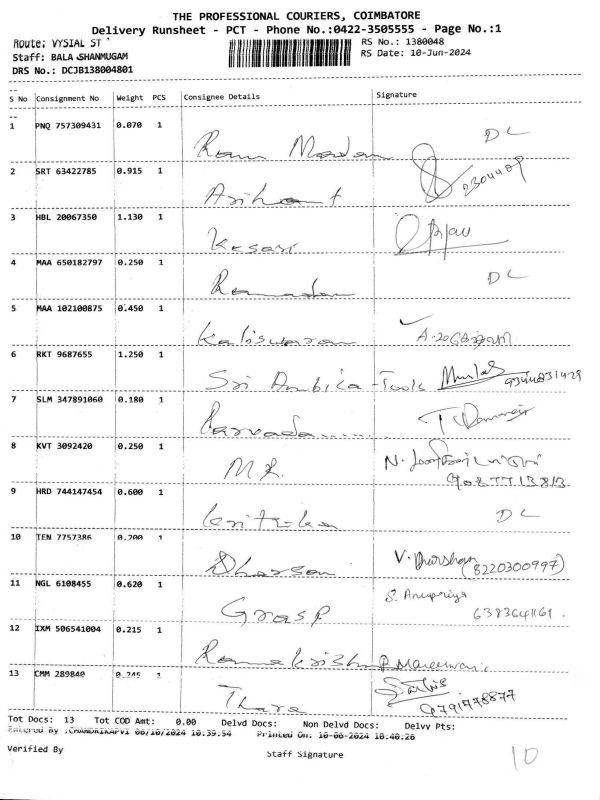 THE PROFESSIONAL COURIERS, COIMBATORE
Delivery Runsheet - PCT - Phone No.:0422-3505555 - Page No.:1
Route: VYSIAL ST
RS No.: 1380048
Staff: BALA SHANMUGAM
RS Date: 10-Jun-2024
DRS No.: DCJB138004801
S No Consignment No Weight PCS Consignee Details Signature
1 PNQ 757309431 0.070 1 Ram DL
2 SRT 63422785 0.915 1 Arihant
3 HBL 20067350 1.130 1 Kesari
4 MAA 650182797 0.250 1 DL
5 MAA 102100875 0.450 1 Kaliswaran
6 RKT 9687655 1.250 1 Sri Ambika Tools
7 SLM 347891060 0.180 1
8 KVT 3092420 0.250 1 M.R.
9 HRD 744147454 0.600 1 DL
10 TEN 7757386 0.200 1 Dharsan V. Dharshan (8220300997)
11 NGL 6108455 0.620 1 Grasp S. Anupriya
6383641161.
12 IXM 506541004 0.215 1 Ramakrishna
13 CMM 289840 0.245 1 Thara 9791778877
Tot Docs: 13 Tot COD Amt: 0.00 Delvd Docs: Non Delvd Docs: Delvv Pts:
Entered By :CHANDRIKAPVI 06/10/2024 10:39:54 Printed On: 10-06-2024 10:40:26
Verified By
Staff Signature
10